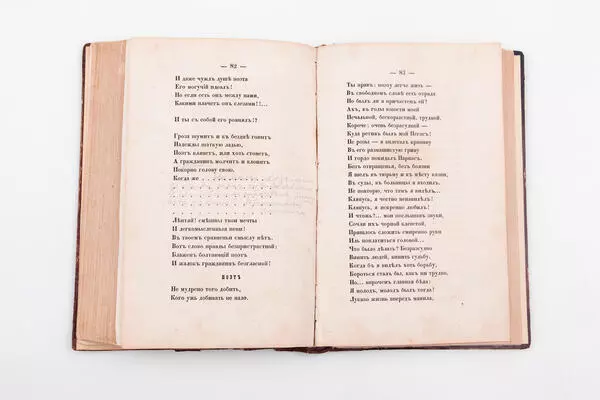 — 82 —
И даже чужлъ душѣ поэта
Его могучій глаголъ!
Но если есть онъ между нами,
Какими плачетъ онъ слезами!!...
И ты съ собой его ровнялъ!?
Гроза шумитъ и къ безднѣ гонитъ
Надежды шаткую ладью,
Поэтъ клянетъ, или хоть стонетъ,
А гражданинъ молчитъ и клонитъ
Покорно голову свою.
Когда же . . . . . . . . . .
Лѣнтяй! смѣшны твои мечты
И легкомысленныя пени!
Въ твоемъ сравненьи смыслу нѣтъ.
Вотъ слово правды безпристрастной:
Блаженъ болтающій поэтъ
И жалокъ гражданинъ безгласный!
ПОЭТЪ
Не мудрено того добить,
Кого ужь добивать не надо.
— 83 —
Ты правъ: поэту легче жить —
Въ свободномъ словѣ есть отрада
Но былъ ли я причастенъ ей?
Ахъ, въ годы юности моей
Печальной, безкорыстной, трудной,
Короче: очень безразсудной —
Куда ретивъ былъ мой Пегасъ!
Не розы — я вплеталъ крапиву
Въ его размашистую гриву
И гордо покидалъ Парнасъ.
Безъ отвращенья, безъ боязни
Я шелъ въ тюрьму и къ мѣсту казни,
Въ суды, въ больницы я входилъ.
Не повторю, что тамъ я видѣлъ...
Клянусь, я честно ненавидѣлъ!
Клянусь, я искренно любилъ!
И чтожъ?... мои послышавъ звуки,
Сочли ихъ чорной клеветой,
Пришлось сложить смиренно руки
Иль поплатиться головой...
Что было дѣлать? Безразсудно
Винить людей, винить судьбу.
Когда бъ я видѣлъ хоть борьбу,
Бороться сталъ бы, какъ ни трудно,
Но... впрочемъ главная бѣда:
Я молодъ, молодъ былъ тогда!
Лукаво жизнь впередъ манила,